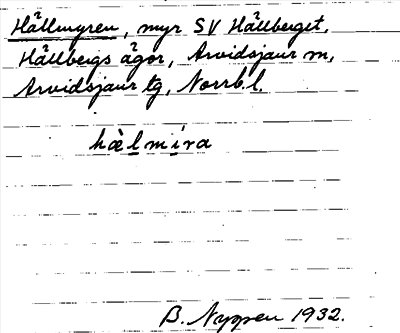 Hällmyren, myr SV Hällberget,
Hällbergs ägor, Arvidsjaur m,
Arvidsjaur tg, Norrb.l.
hälmira
B. Nyppen 1932.